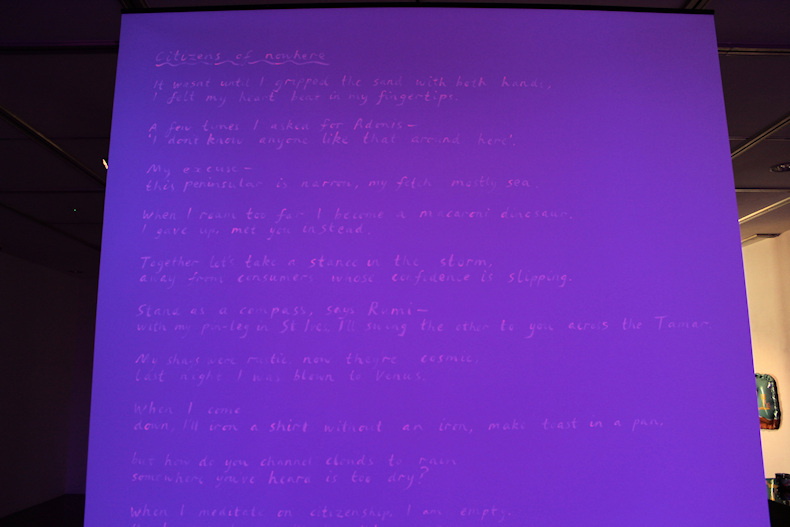 Citizens of nowhere
It wasnt until I gripped the sand with both hands,
I felt my heart beat in my fingertips.
A few times I asked for Adonis—
'I dont know anyone like that around here'.
My excuse—
this peninsular is narrow, my fetch mostly sea.
When I roam too far I become a macaroni dinosaur.
I gave up, met you instead.
Together let's take a stance in the storm,
away from consumers whose confidence is slipping.
Stand as a compass, says Rumi—
with my pin-leg in St Ives, I'll swing the other to you across the Tamar.
My shoes were rustic, now they're cosmic.
Last night I was blown to Venus.
When I come
down, I'll iron a shirt without an iron, make toast in a pan.
but how do you channel clouds to rain
somewhere you've heard is too dry?
When I meditate on citizenship I am empty.